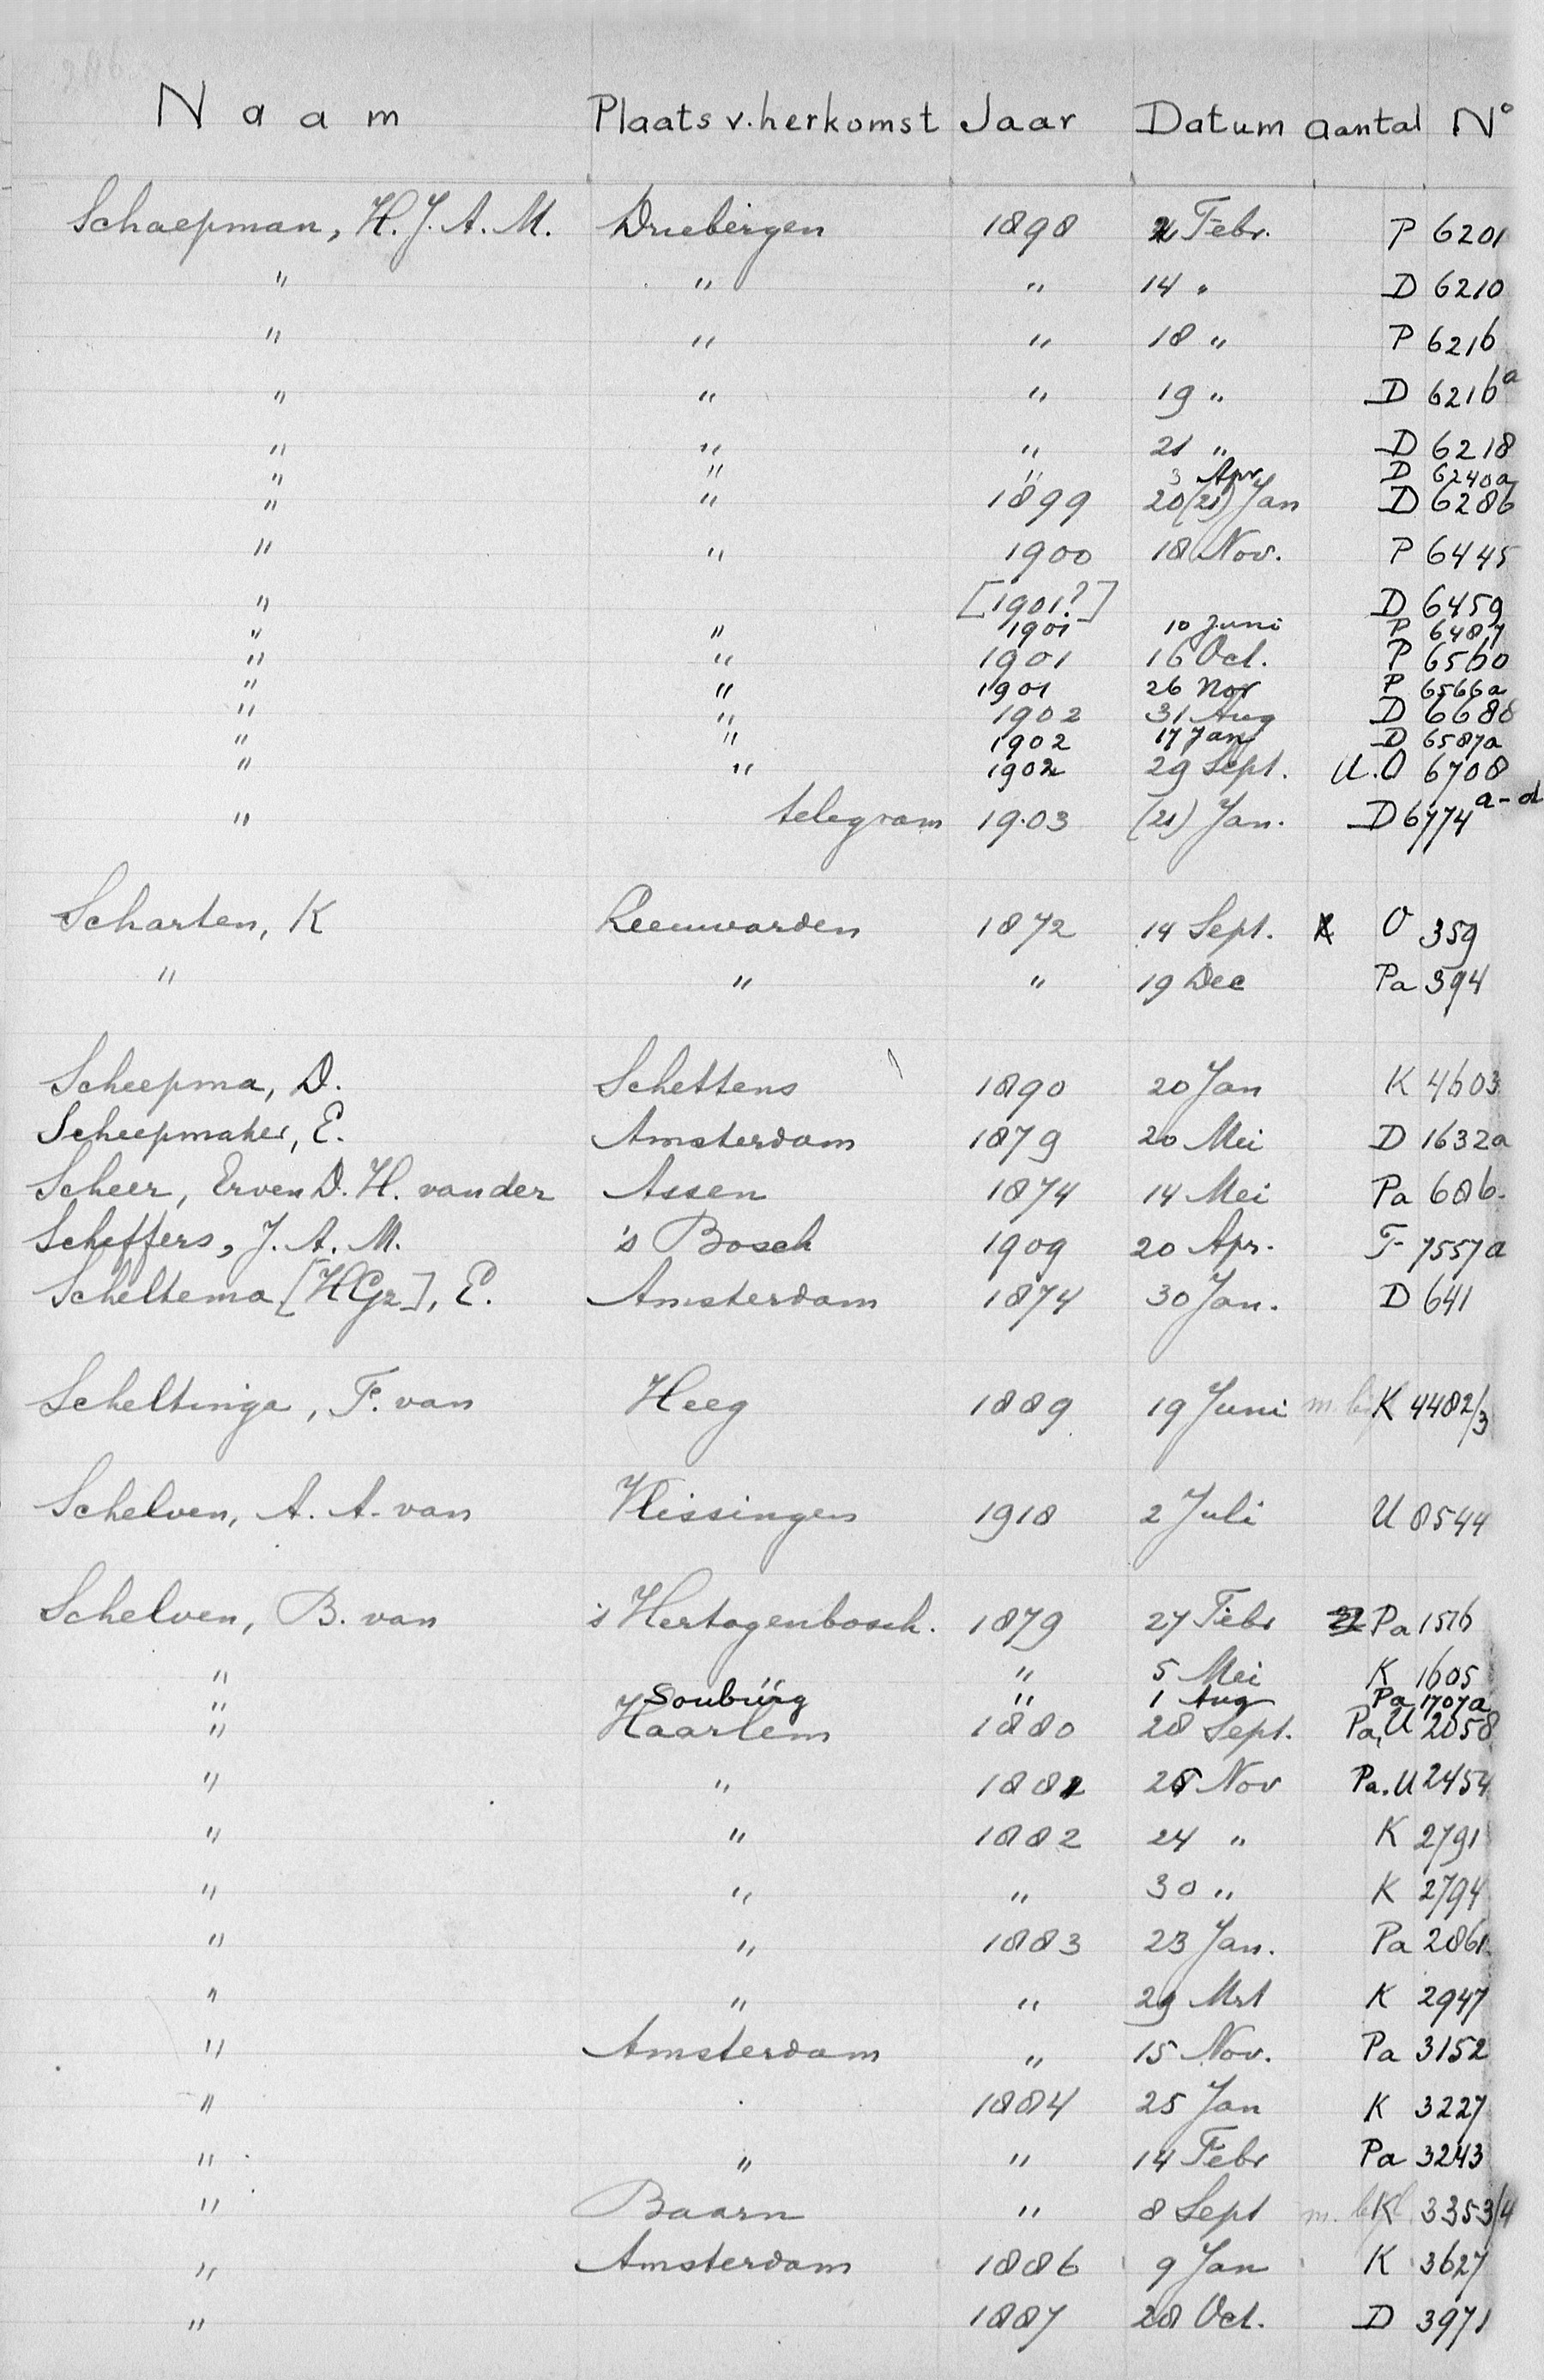 Naam Plaats v. herkomst Jaar Datum aantal N°
Schaepman, H. J. A. M. Driebergen 1898 2 Febr. P 6201
" " " 14 " D 6210
" " " 18 " P 6216
" " " 19 " D 6216a
" " " 21 " D 6218
" " " 3 Apr. D 6240a
" " 1899 20(21) Jan D 6286
" " 1900 18 Nov. P 6445
" [1901?] D 6459
" " 1901 10 Juni P 6487
" " 1901 16 Oct. P 6560
" " 1901 26 Nov P 6566a
" " 1902 31 Aug D 6688
" " 1902 17 Jan D 6587a
" " 1902 29 Sept. U.O 6708
" telegram 1903 (21) Jan. D 6774 a-d
Scharten, K Leeuwarden 1872 14 Sept. O 359
" " " 19 Dec Pa 394
Scheepma, D. Schettens 1890 20 Jan K 4603
Scheepmaker, E. Amsterdam 1879 20 Mei D 1632a
Scheer, Erven D. H. van der Assen 1874 14 Mei Pa 686.
Scheffers, J. A. M. 's Bosch 1909 20 Apr. T 7557a
Scheltema [HGz], E. Amsterdam 1874 30 Jan. D 641
Scheltinga, F. van Heeg 1889 19 Juni m. bijl K 4482/3
Schelven, A. A. van Vlissingen 1918 2 Juli U 8544
Schelven, B. van 's Hertogenbosch. 1879 27 Febr Pa 1516
" " 5 Mei K 1605
" Souburg " 1 Aug Pa 1707a
" Haarlem 1880 28 Sept. Pa, U 2058
" " 1881 28 Nov Pa. U 2454
" " 1882 24 " K 2791
" " " 30 " K 2794
" " 1883 23 Jan. Pa 2861
" " " 29 Mrt K 2947
" Amsterdam " 15 Nov. Pa 3152
" 1884 25 Jan K 3227
" " " 14 Febr Pa 3243
" Baarn " 8 Sept m. bijl K 3353/4
" Amsterdam 1886 9 Jan K 3627
" 1887 28 Oct. D 3971